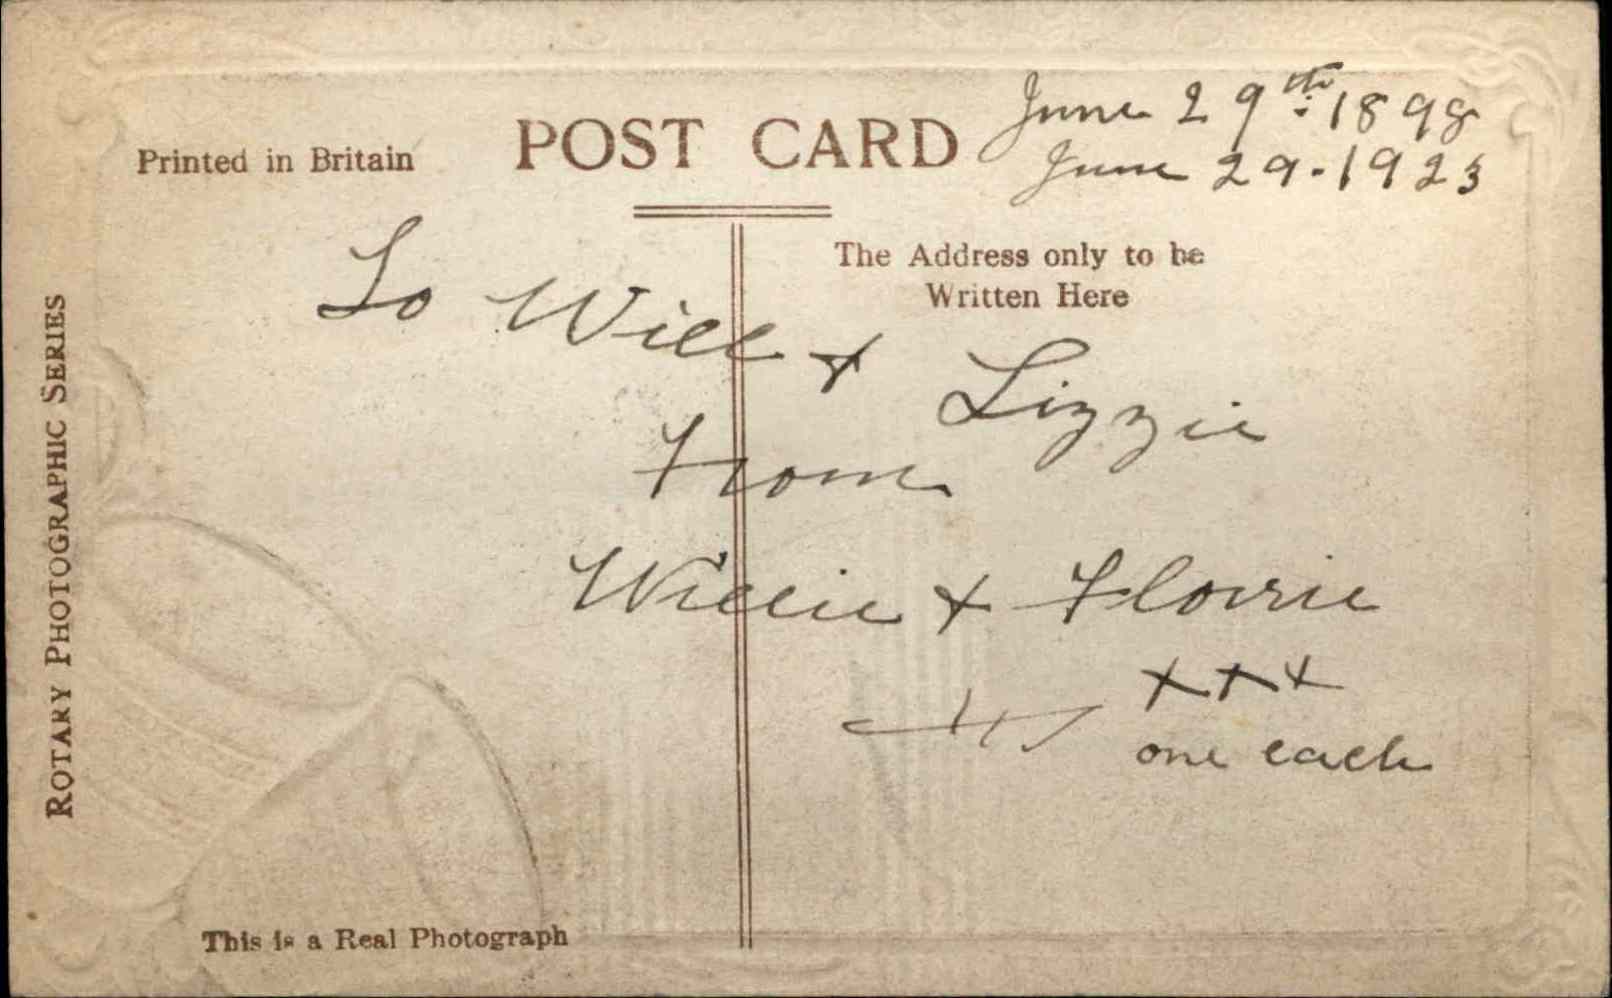 June 29th. 1898
June 29. 1923
Printed in Britain
POST CARD
The Address only to be
Written Here
To Will + Lizzie
From
Willie + Florrie
+++
one each
ROTARY PHOTOGRAPHIC SERIES
This is a Real Photograph